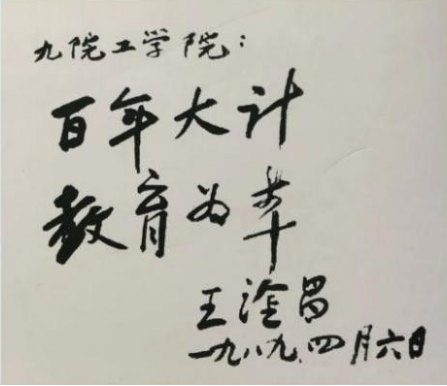 九院工学院：
百年大计
教育为本
王淦昌
一九八九.四月六日